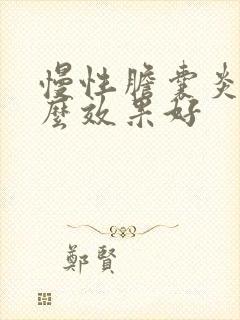 慢性膽囊炎
麼效果好
鄭賢